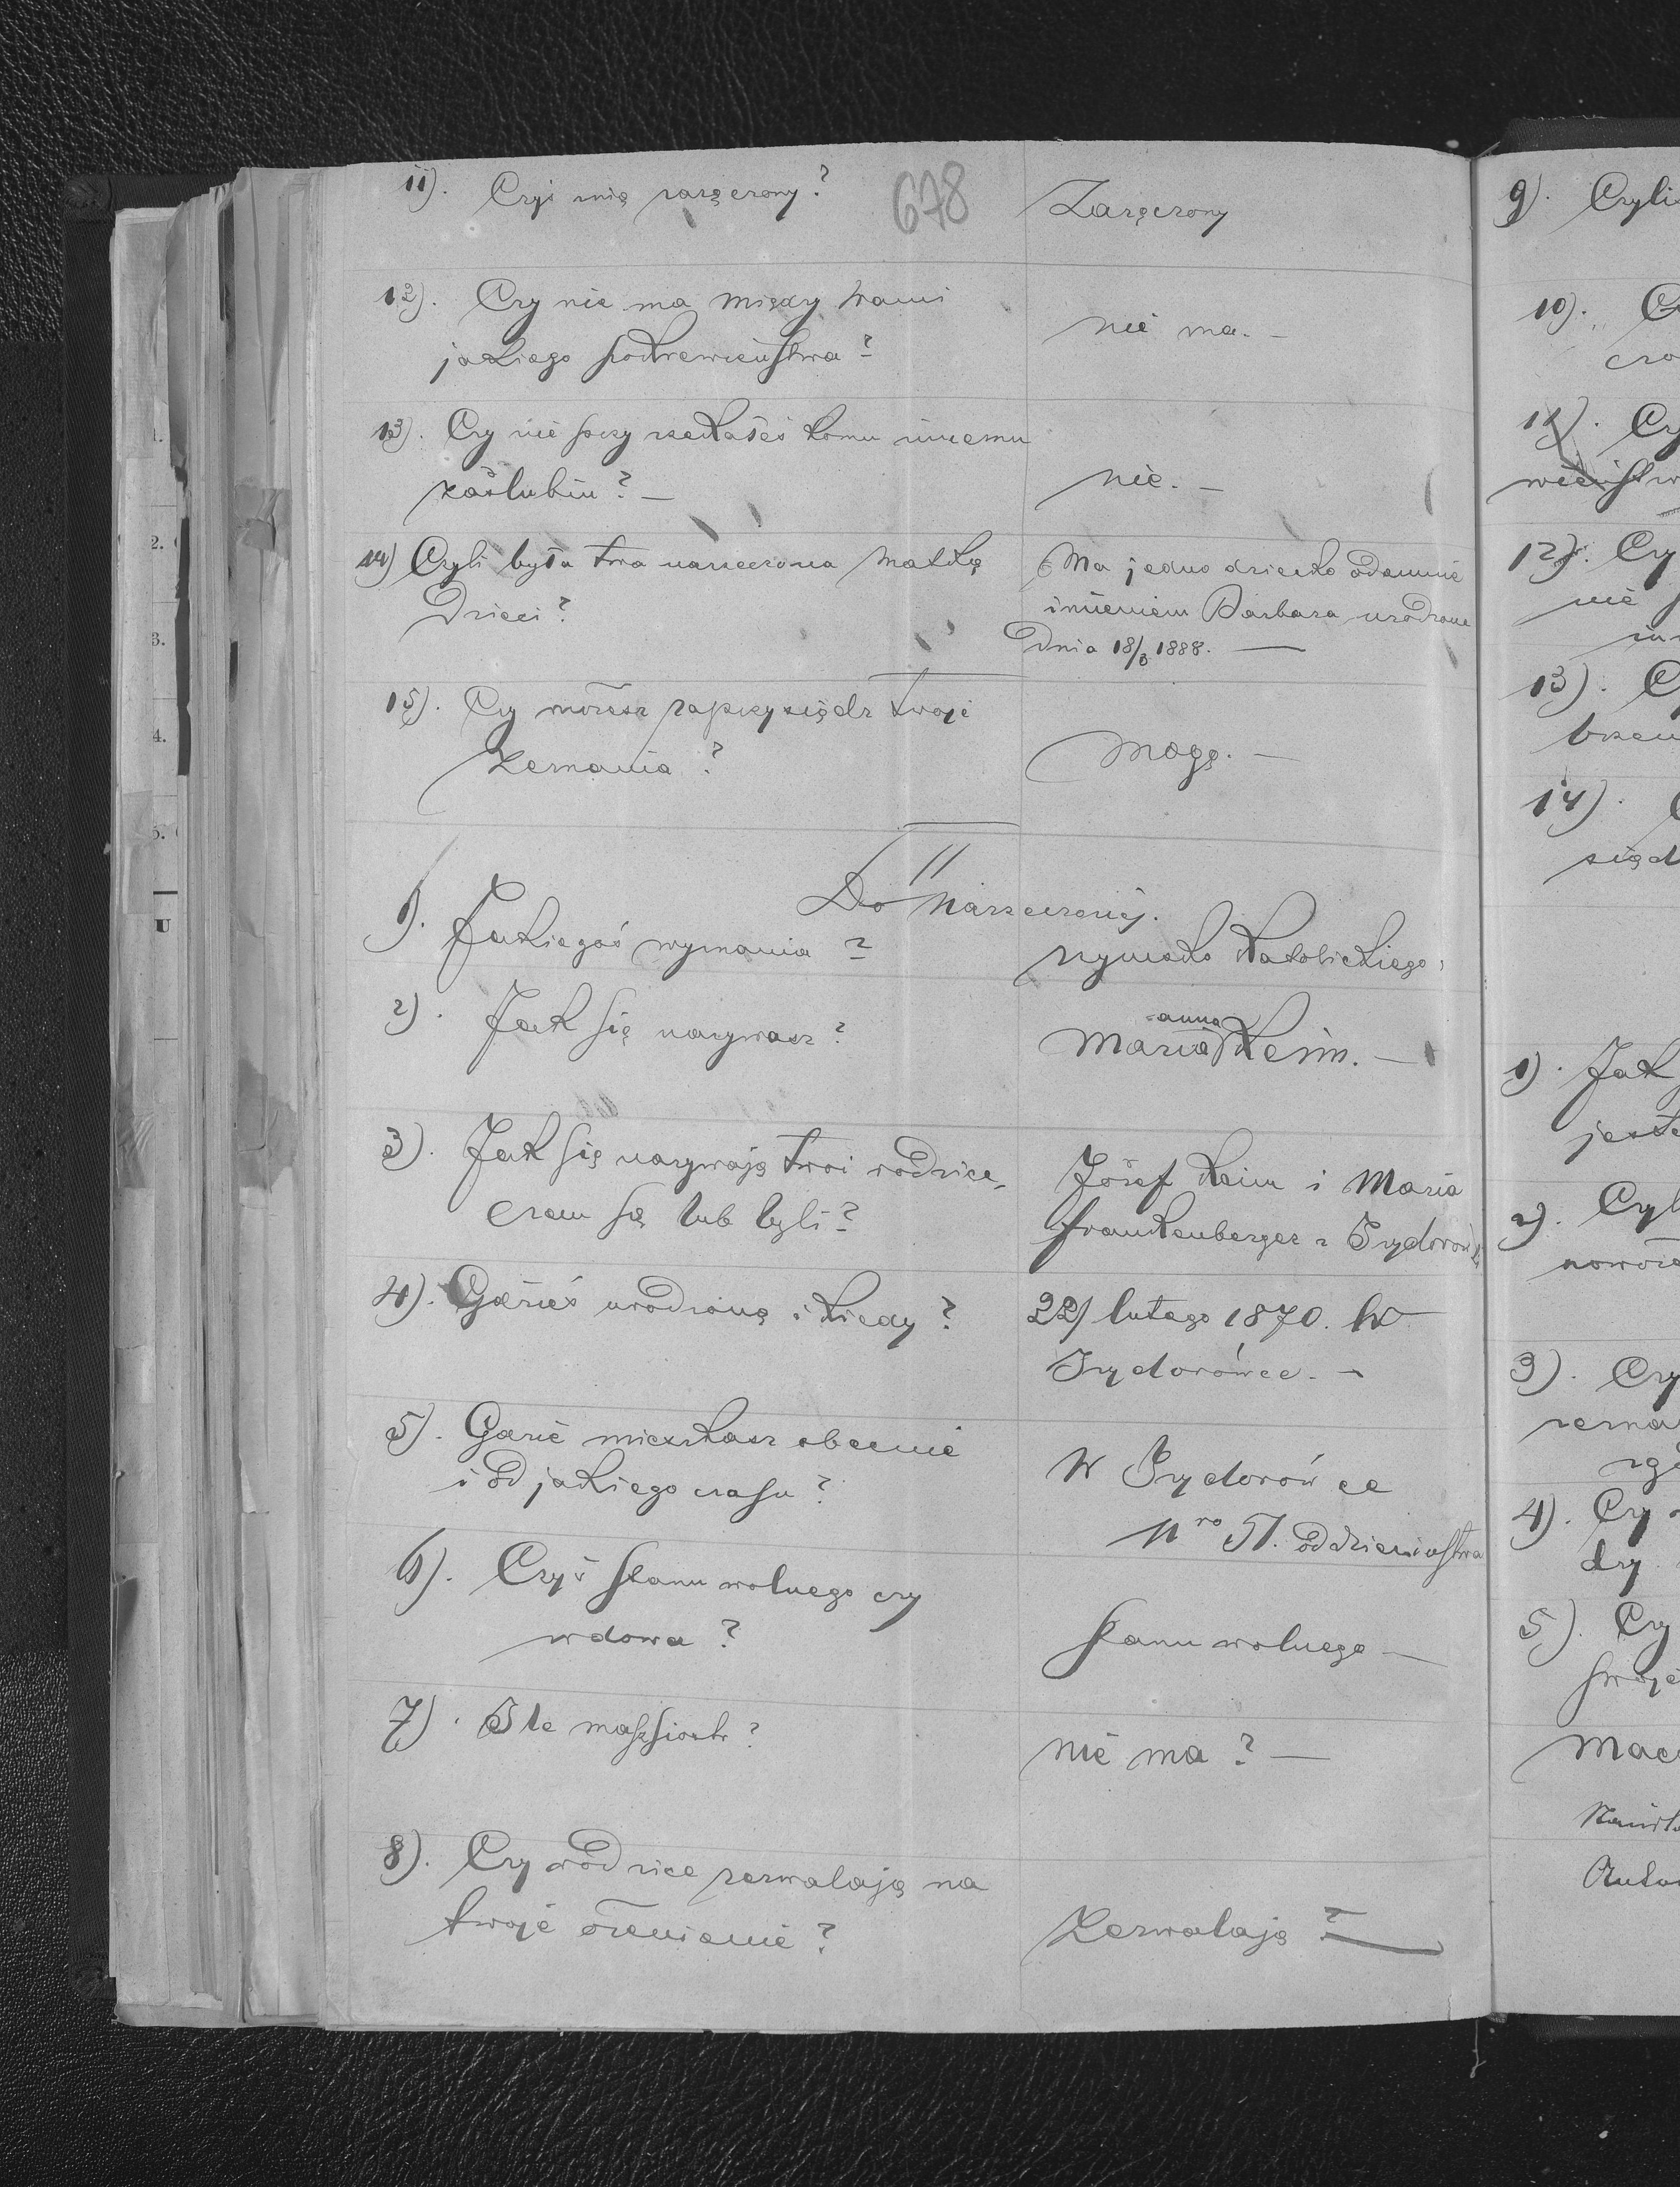 678
11). Czyś nią zaręczony?
Zaręczony
12). Czy nie ma między wami
jakiego pokrewieństwa?
nie ma. -
13). Czy nie przyrzekałeś komu innemu
zaślubin? -
nie. -
14) Czyli była twa narzeczona matką
Dzieci?
Ma jedno dziecko odemnie
imieniem Barbara urodzone
dnia 18/3 1888. -
15). Czy możesz zaprzysiądz twoje
Zeznania?
Mogę. -
II
Do narzeczonej.
1). Jakiegoś wyznania?
rzymsko katolickiego.
2). Jak się nazywasz?
anna
Maria Keim. -
3). Jak się nazywają twoi rodzice,
czem są lub byli?
Józef Keim i Maria
Frankenberger z Izydorówki
4). Gdzieś urodzoną i kiedy?
22/ lutego 1870. W
Izydorówce. -
5). Gdzie mieszkasz obecnie
i od jakiego czasu?
W Izydorówce
Nro 51. od dzieciństwa
6). Czyś stanu wolnego czy
wdowa?
stanu wolnego -
7). Ile masz siostr?
nie ma? -
8). Czy rodzice zezwalają na
twoje ożenienie?
Zezwalają? -
9). Czyli
10).
11). Czy
12). Czy
nie
13).
14).
siąd
1). Jak
2). Czyl
3). Czy
4). Czy
5). Czy
swoje
2.
3.
4.
5.
U